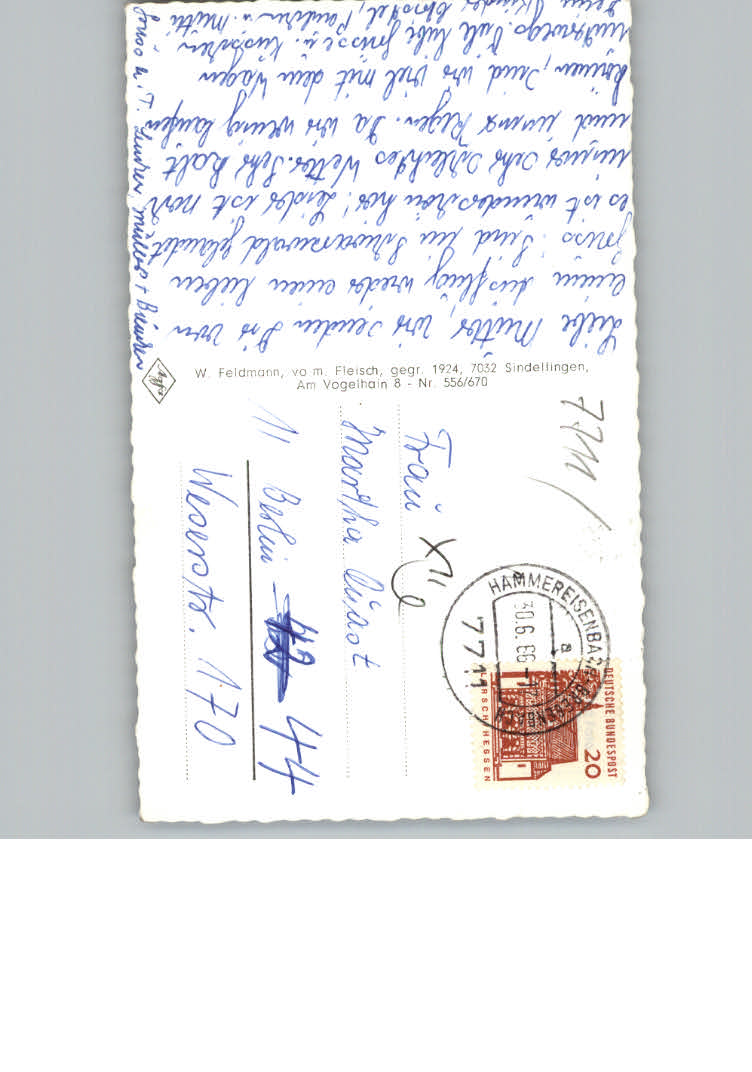 Liebe Mutter, wir senden Dir von
einem Ausflug wieder einen lieben
Gruss. Sind im Schwarzwald gelandet
es ist wunderschön hier! Leider ist nur
immer sehr schlechtes Wetter. Sehr kalt
und immer Regen. Da wir wenig laufen
können, sind wir viel mit dem Wagen
unterwegs. Viele liebe Grüsse u. Küsse
Deine Kinder
Gruss u.
W. Feldmann, vorm. Fleisch, gegr. 1924, 7032 Sindelfingen,
Am Vogelhain 8 - Nr. 556/670
7711
Frau
Martha
1 Berlin 44
Weserstr. 170
HAMMEREISENBACH-BREGENBACH
30.6.66
a
7711
DEUTSCHE BUNDESPOST
20
LORSCH/HESSEN
Agfa